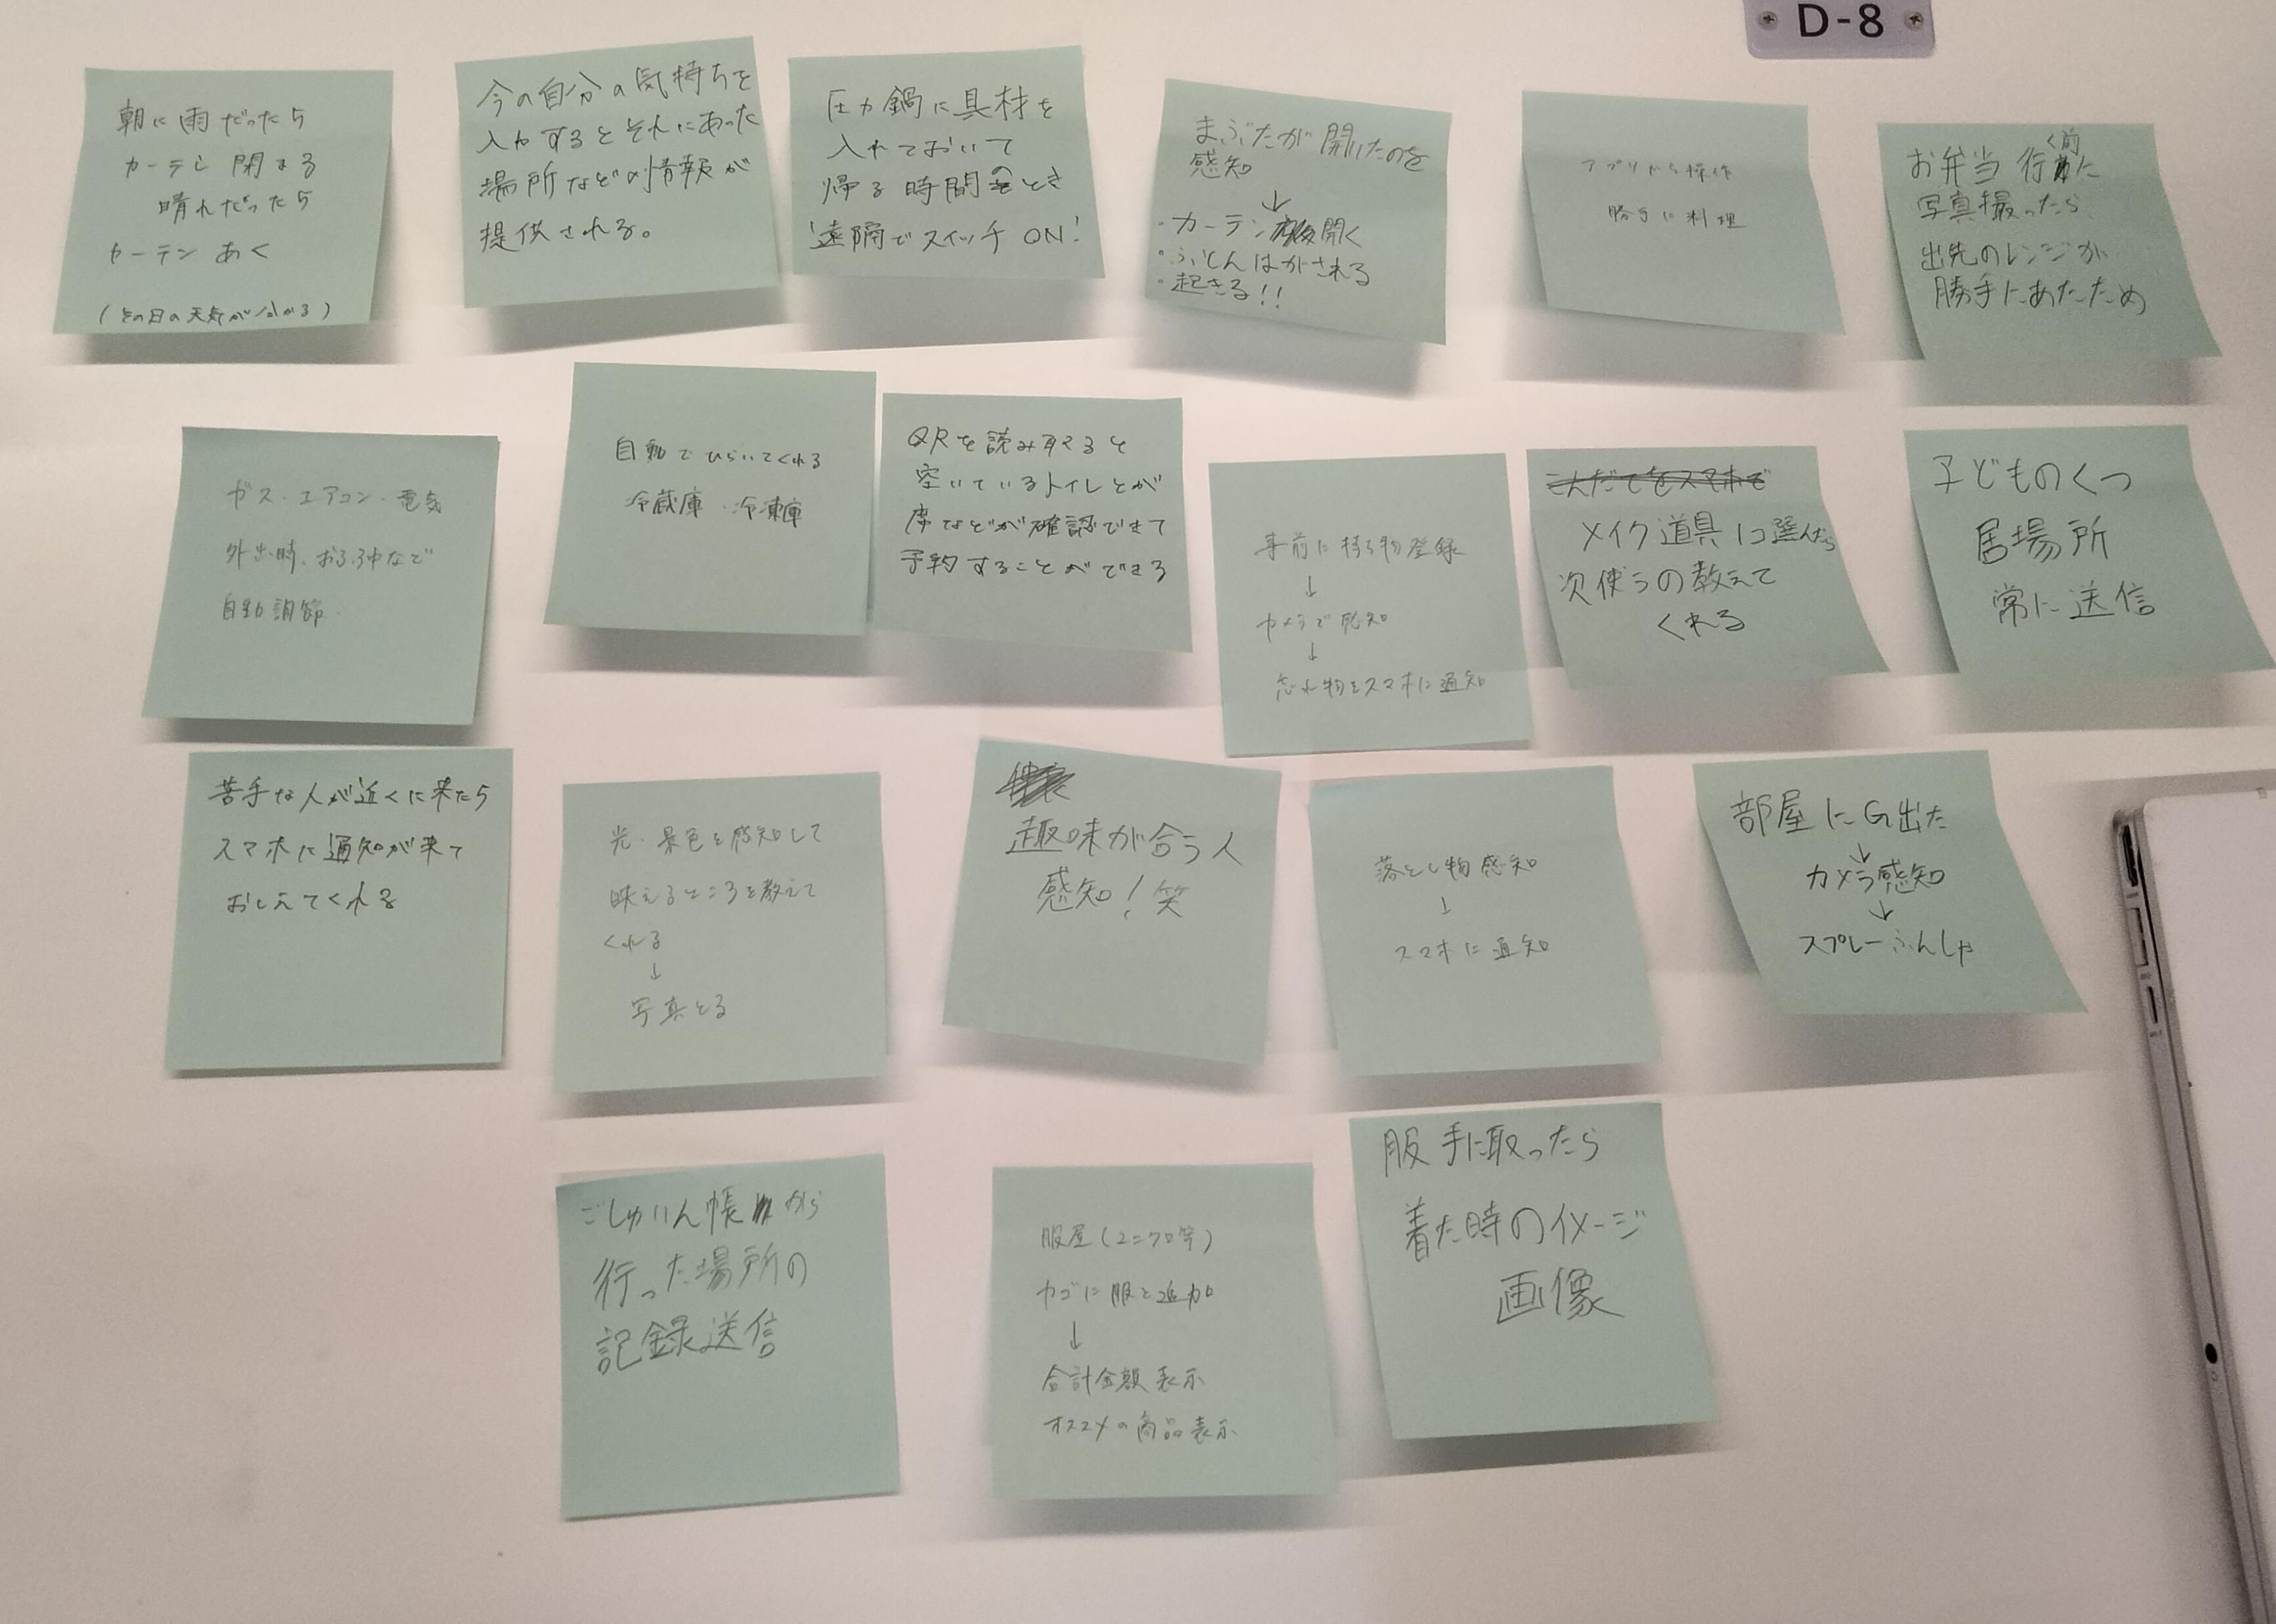 D-8
朝に雨だったら
カーテン閉まる
晴れだったら
カーテンあく
(その日の天気が分かる)
今の自分の気持ちを
入力するとそれにあった
場所などの情報が
提供される。
圧力鍋に具材を
入れておいて
帰る時間のとき
遠隔でスイッチON!
まぶたが開いたのを
感知
↓
・カーテン開く
・ふとんはがされる
・起きる!!
アプリから操作
勝手に料理
お弁当 行く前に
写真撮ったら
出先のレンジが
勝手にあたため
ガス・エアコン・電気
外出時、おふろ中など
自動調節
自動でひらいてくれる
冷蔵庫・冷凍庫
QRを読み取ると
空いているトイレとか
席などが確認できて
予約することができる
事前に持ち物登録
↓
カメラで感知
↓
忘れ物をスマホに通知
こんだてをスマホで
メイク道具1コ選んだら
次使うの教えて
くれる
子どものくつ
居場所
常に送信
苦手な人が近くに来たら
スマホに通知が来て
おしえてくれる
光・景色を感知して
映えるところを教えて
くれる
↓
写真とる
趣味が合う人
感知!笑
落とし物感知
↓
スマホに通知
部屋にG出た
↓
カメラ感知
↓
スプレーふんしゃ
ごしゅいん帳から
行った場所の
記録送信
服屋(ユニクロ等)
カゴに服を追加
↓
合計金額表示
オススメの商品表示
服手に取ったら
着た時のイメージ
画像